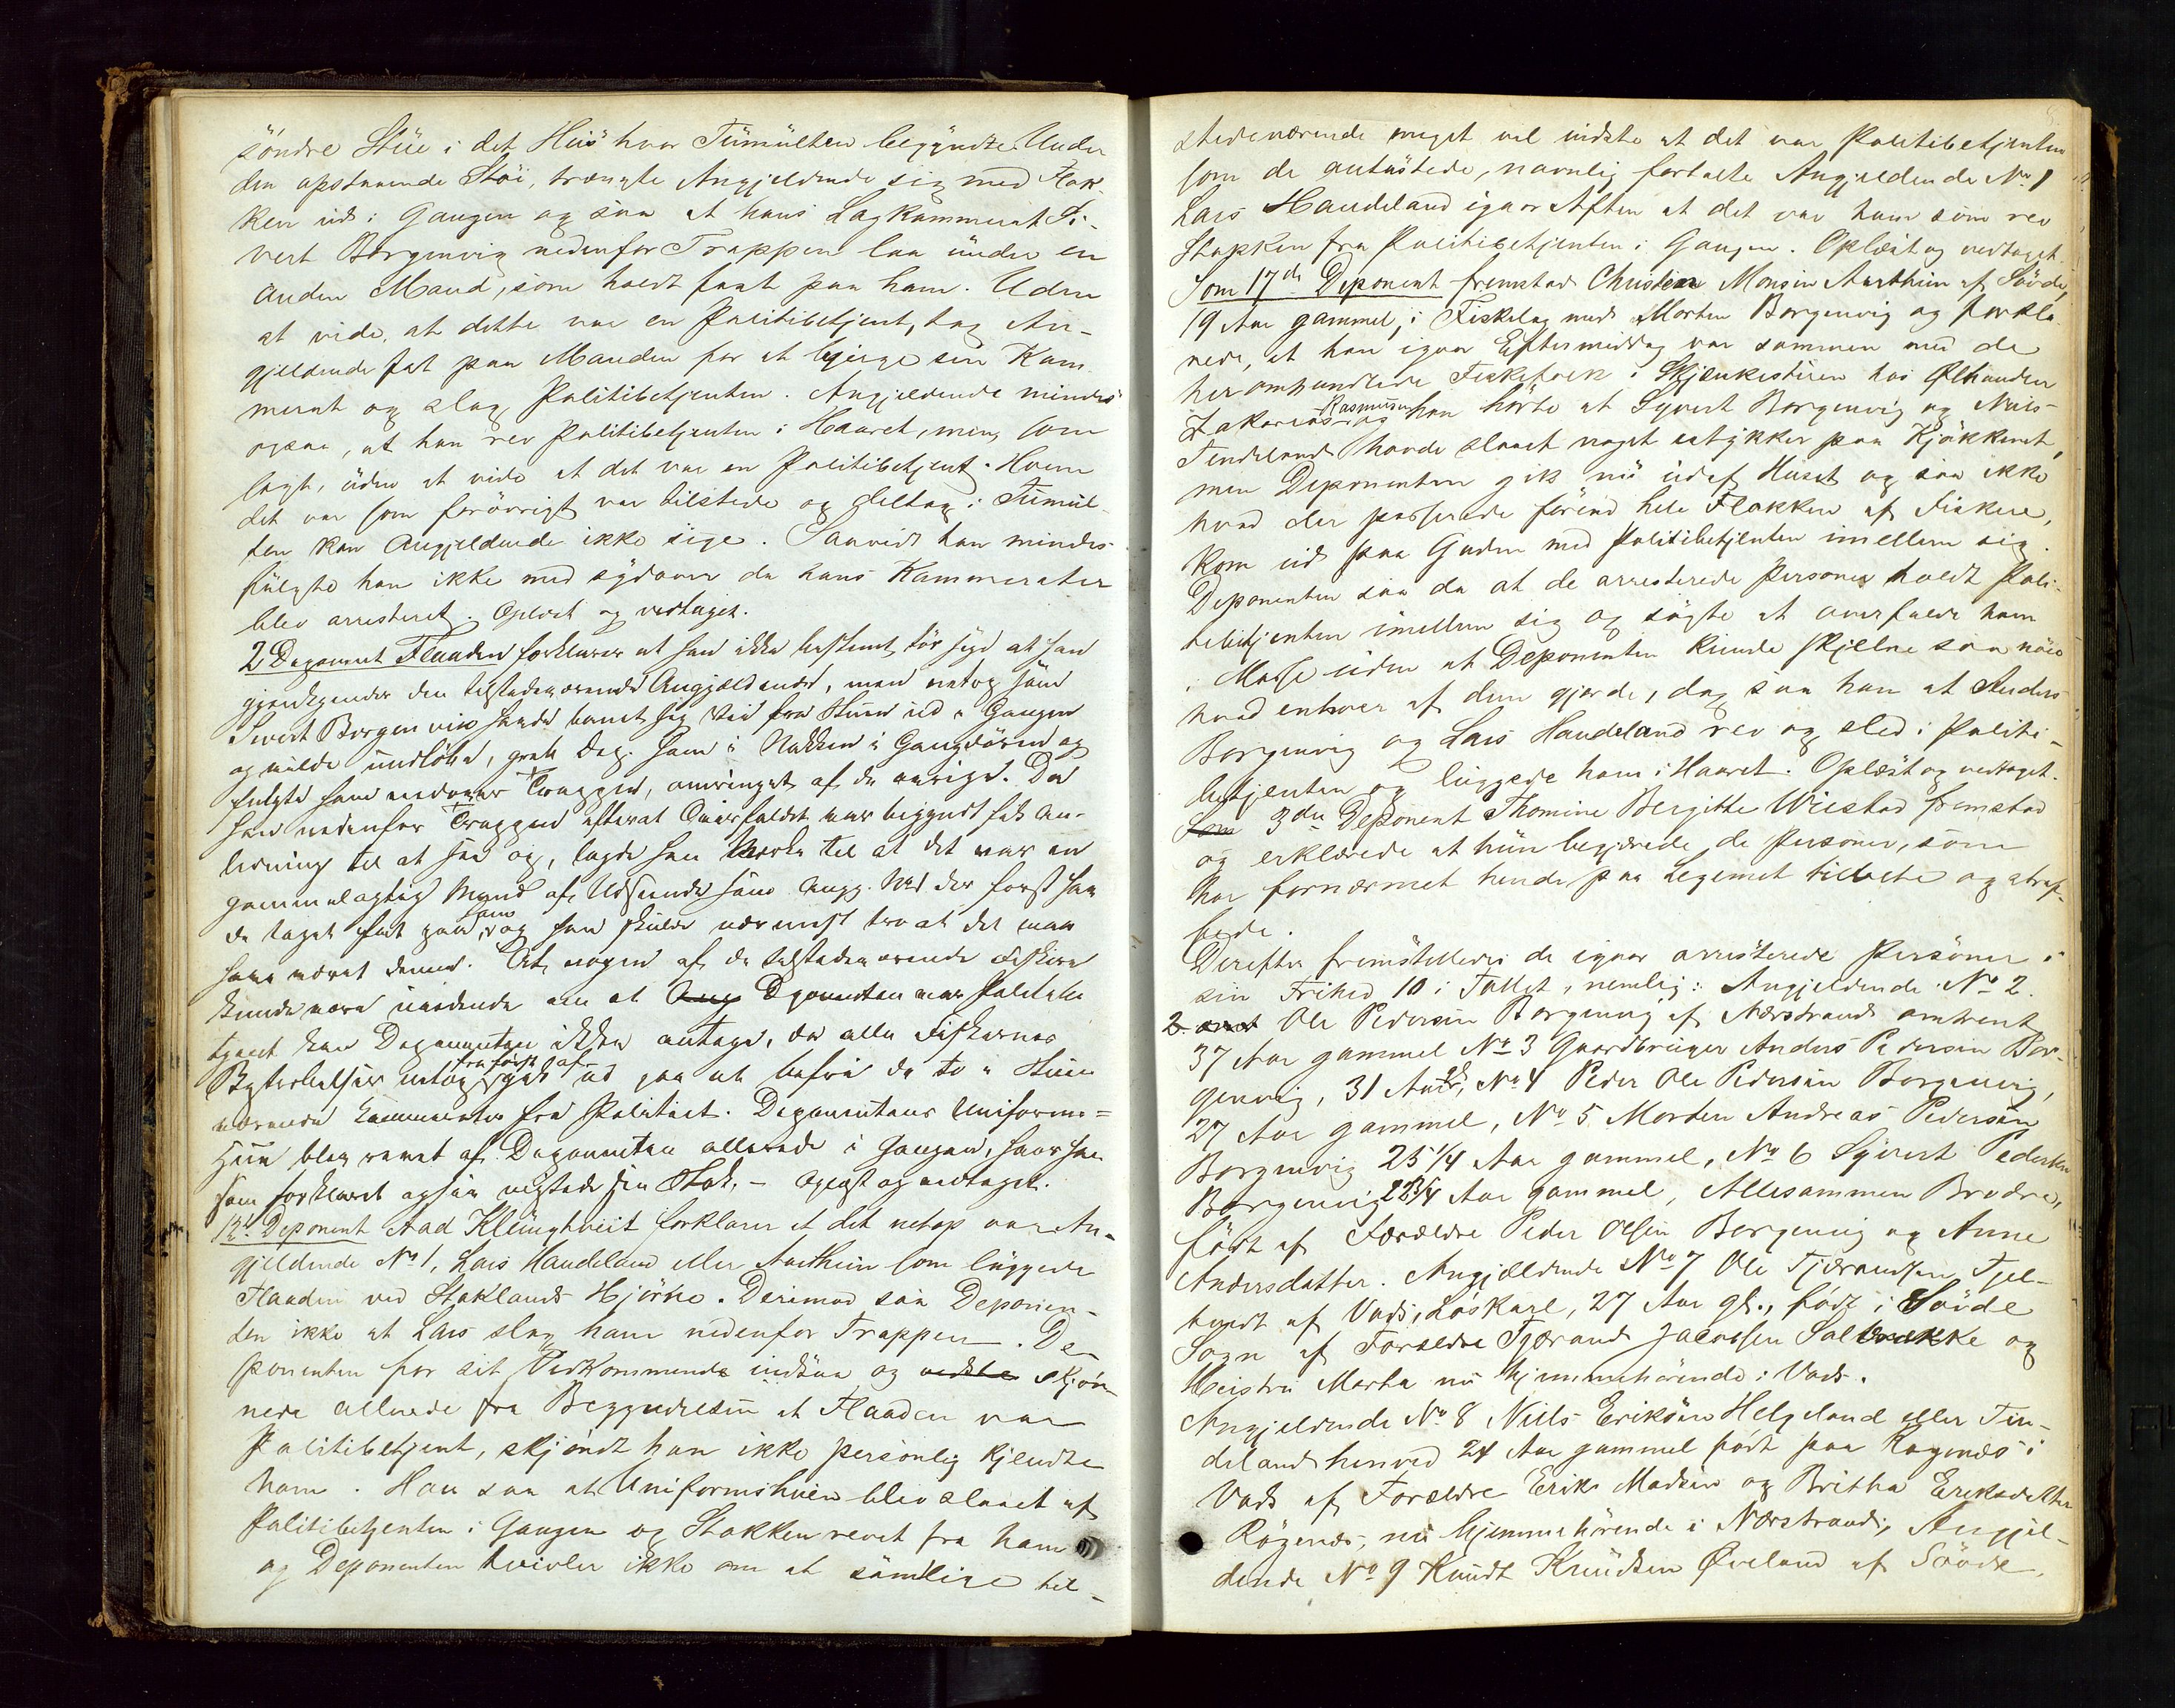 söndre Stüe i det Hüs hvor Tümülten begyndte. Under
den opstaaende Støi, trængte Angjeldende sig med Flok-
ken ud i Gangen og saa at hans Lagkammerat Si-
vert Borgenvig nedenfor Trappen laa ünder en
anden Mand, som holdt fast paa ham. Uden
at vide, at dette var en Politibetjent, tog An-
gjeldende fat paa Manden for at bjerge sin Kam
merat og slog Politibetjenten. Angjeldende mindes
ogsaa, at han rev Politibetjenten i Haaret, men som
sagt, üden at vide at det var en Politibetjent. Hvem
det var som forövrigt var tilstede og deltog i Tümül-
ten kan Angjeldende ikke sige. Saavidt han mindes
fülgte han ikke med sydover da hans Kammerater
blev arresteret. Oplæst og vedtaget.
2 Deponent Flaaden forklarer at han ikke bestemt tör sige at han
gjenkjender den tilstedeværende Angjældende, men netop som
Sivert Borgenvig havde banet sig Vei fra Stuen ud i Gangen
og vilde undløbe, greb Dep. ham i Nakken i Gangdøren og
fulgte ham nedover Trappen, omringet af de øvrige. Da
han nedenfor Trappen efterat Overfaldet var begyndt fik An-
ledning til at see op, lagde han Mærke til at det var en
gammelagtig Mand af Udseende som Angj. No 1 der først hav
de taget fat paa ham og han skulde nærmest tro at det maa
have været denne. At nogen af de tilstedeværende Fiskere
kunde være uvidende om at Deponenten var Politibe
tjent kan Deponenten ikke antage, da alle Fiskernes
Bestræbelser netop fra først af gik ud paa at befrie de to i Stuen
værende Kammerater fra Politiet. Deponentens Uniforms=
Hue blev revet af Deponenten allerede i Gangen, hvor han
som forklaret ogsaa mistede sin Stok. – Oplæst og vedtaget.
12te Deponent Aad Kleüngtveit forklarer at det netop var An-
gjeldende No 1, Lars Haudeland eller Aartheim som lüggede
Flaaden ved Stoklands Hjörne. Derimod saa Deponen-
ten ikke at Lars slog ham nedenfor Trappen. De-
ponenten for sit Vedkommende indsaa og vidste skjön
nede allerede fra Begyndelsen at Flaaden var
Politibetjent, skjöndt han ikke personlig kjendte
ham. Han saa at Uniformshuen blev slaaet af
Politibetjenten i Gangen og Stokken revet fra ham
og Deponenten tvivler ikke om at samtlige til-
stedeværende meget vel vidste at det var Politibetjenten
som de antastede, navnlig fortalte Angjeldende No 1
Lars Haudeland igaar Aften at det var ham som rev
Stokken fra Politibetjenten i Gangen. Oplæst og vedtaget.
Som 17de Deponent fremstod Christen Monsen Aartheim af Søvde,
19 Aar gammel, i Fiskelag med Morten Borgenvig og forkla-
rede, at han igaar Eftermiddag var sammen med de
her omhandlede Fiskefolk i Skjænkestuen hos Ølhandler
Zakarias Rasmusen og han hörte at Syvert Borgenvig og Niels
Tendeland havde slaaet noget istykker paa Kjökkenet,
men Deponenten gik nu ud af Huset og saa ikke
hvad der passerede förend hele Flokken af Fiskere,
kom ud paa Gaden med Politibetjenten imellem sig.
Deponenten saa da at de arresterede Personer holdt Poli-
tibetjenten imellem sig og sögte at overfalde ham
i Masse uden at Deponenten kunde skjelne saa nöie
hvad enhver af dem gjorde, dog saa han at Anders
Borgenvig og Lars Haudeland rev og sled i Politi-
betjenten og luggede ham i Haaret. Oplæst og vedtaget.
Som 3die Deponent Thomine Bergitte Wiestad fremstod
og erklærede at hün begjærede de Personer, som
har fornærmet hende paa Legemet tiltalte og straf-
fede.
Derefter fremstilledes de igaar arresterede Personer i
sin Frihed 10 i Tallet, nemlig: Angjeldende No 2.
2 Ole Pedersen Borgenvig af Nærstrand omtrent
37 Aar gammel No 3 Gaardbruger Anders Pedersen Bor-
genvig, 31 Aar gl, No 4 Peder Ole Pedersen Borgenvig,
27 Aar gammel, No 5 Morten Andreas Pedersen
Borgenvig 25 1/4 Aar gammel, No 6 Syvert Pedersen
Borgenvig 22 3/4 Aar gammel, Allesammen Brødre,
födt af Forældre Peder Olsen Borgenvig og Anne
Andersdatter. Angjældende No 7 Ole Tjærandsen Tjel-
tveit af Vads, Løskarl, 27 Aar gl., födt i Søvde
Sogn af Forældre Tjærand Jacobsen Saltvække og
Hustru Marta nu hjemmehörende i Vads.
Angjeldende No 8 Niels Eriksen Helgeland eller Tin-
deland henved 24 Aar gammel födt paa Røgenæs i
Vads af Forældre Erik Madsen og Britha Eriksdatter
Røgenæs, nu hjemmehörende i Nærstrand; Angjel-
dende No 9 Knudt Knudsen Øveland af Søvde.